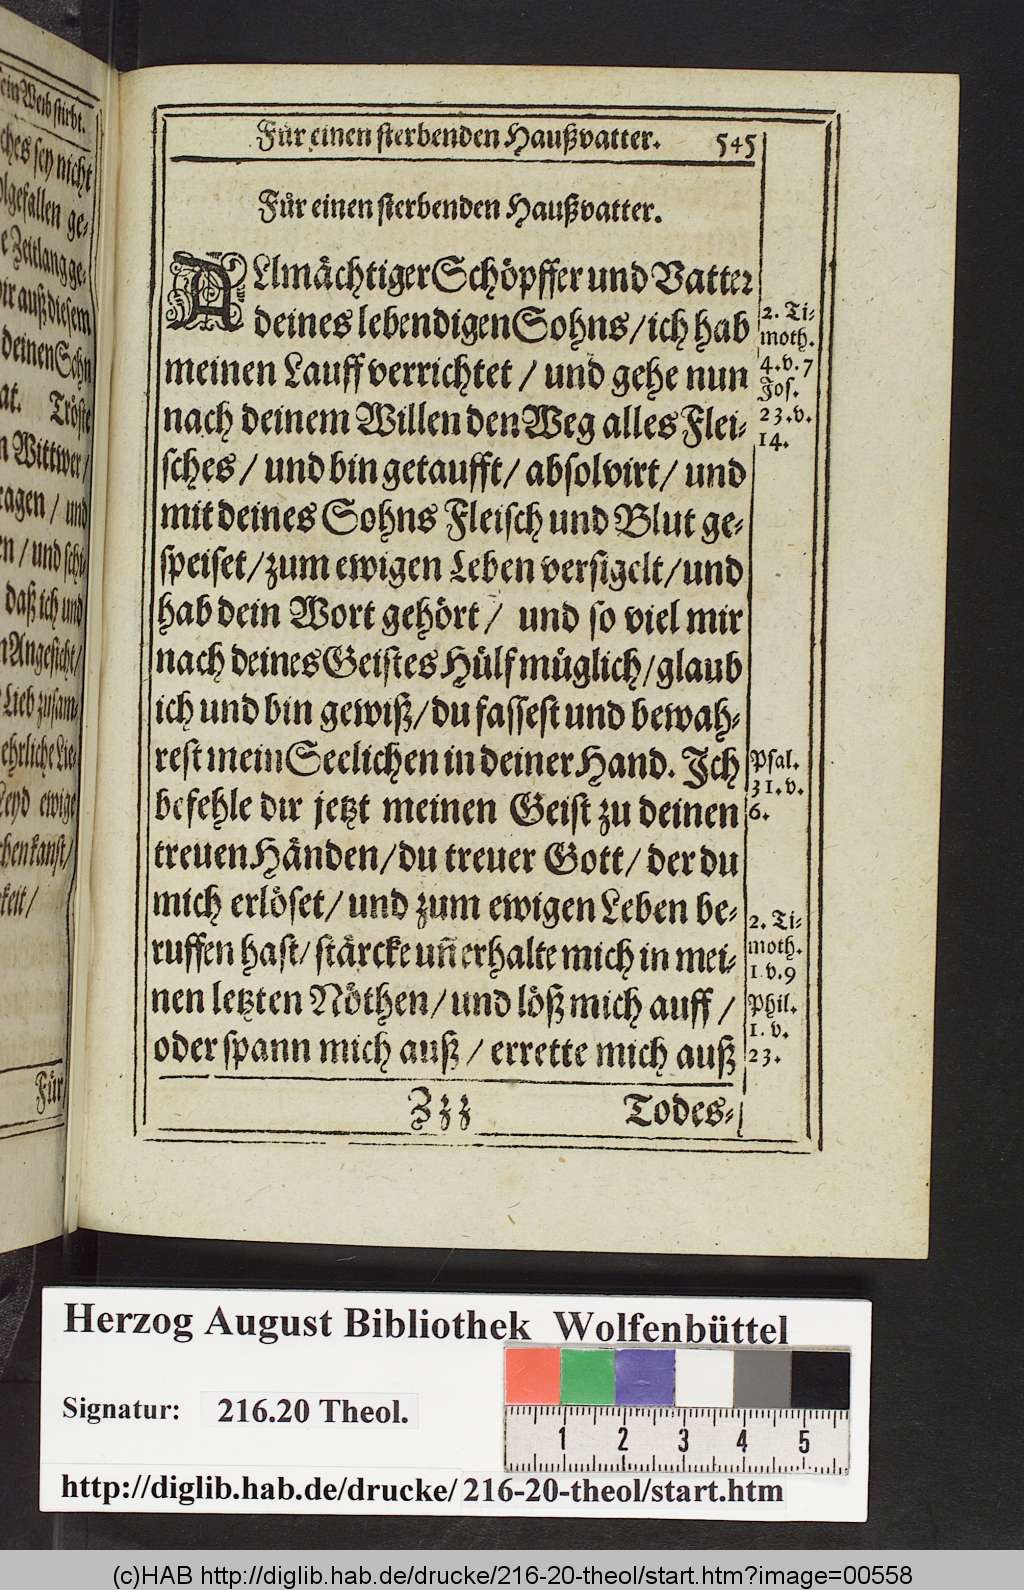 ein Weib stirbt.
ches sey nicht
olgefallen ge-
e Zeitlang ge-
ir auß diesem
deinen Sohn
at. Tröste
n Wittwer /
ragen / und
en / und schi-
daß ich und
n Angesicht /
Lieb zusam-
ehrliche Lie-
Leyd ewige
chen kanst /
keit /
Für
Fuͤr einen sterbenden Haußvatter. 545
Fuͤr einen sterbenden Haußvatter.
ALlmächtiger Schöpffer und Vatter
deines lebendigen Sohns / ich hab
meinen Lauff verrichtet / und gehe nun
nach deinem Willen den Weg alles Flei-
sches / und bin getaufft / absolvirt / und
mit deines Sohns Fleisch und Blut ge-
speiset / zum ewigen Leben versigelt / und
hab dein Wort gehört / und so viel mir
nach deines Geistes Hülf müglich / glaub
ich und bin gewiß / du fassest und bewah-
rest mein Seelichen in deiner Hand. Ich
befehle dir jetzt meinen Geist zu deinen
treuen Händen / du treuer Gott / der du
mich erlöset / und zum ewigen Leben be-
ruffen hast / stärcke uñ erhalte mich in mei-
nen letzten Nöthen / und löß mich auff /
oder spann mich auß / errette mich auß
Zzz Todes-
2. Ti-
moth.
4. v. 7
Jos.
23. v.
14.
Psal.
31. v.
6.
2. Ti-
moth.
1. v. 9
Phil.
1. v.
23.
Herzog August Bibliothek Wolfenbüttel
Signatur: 216.20 Theol.
1 2 3 4 5
http://diglib.hab.de/drucke/ 216-20-theol/start.htm
(c)HAB http://diglib.hab.de/drucke/216-20-theol/start.htm?image=00558